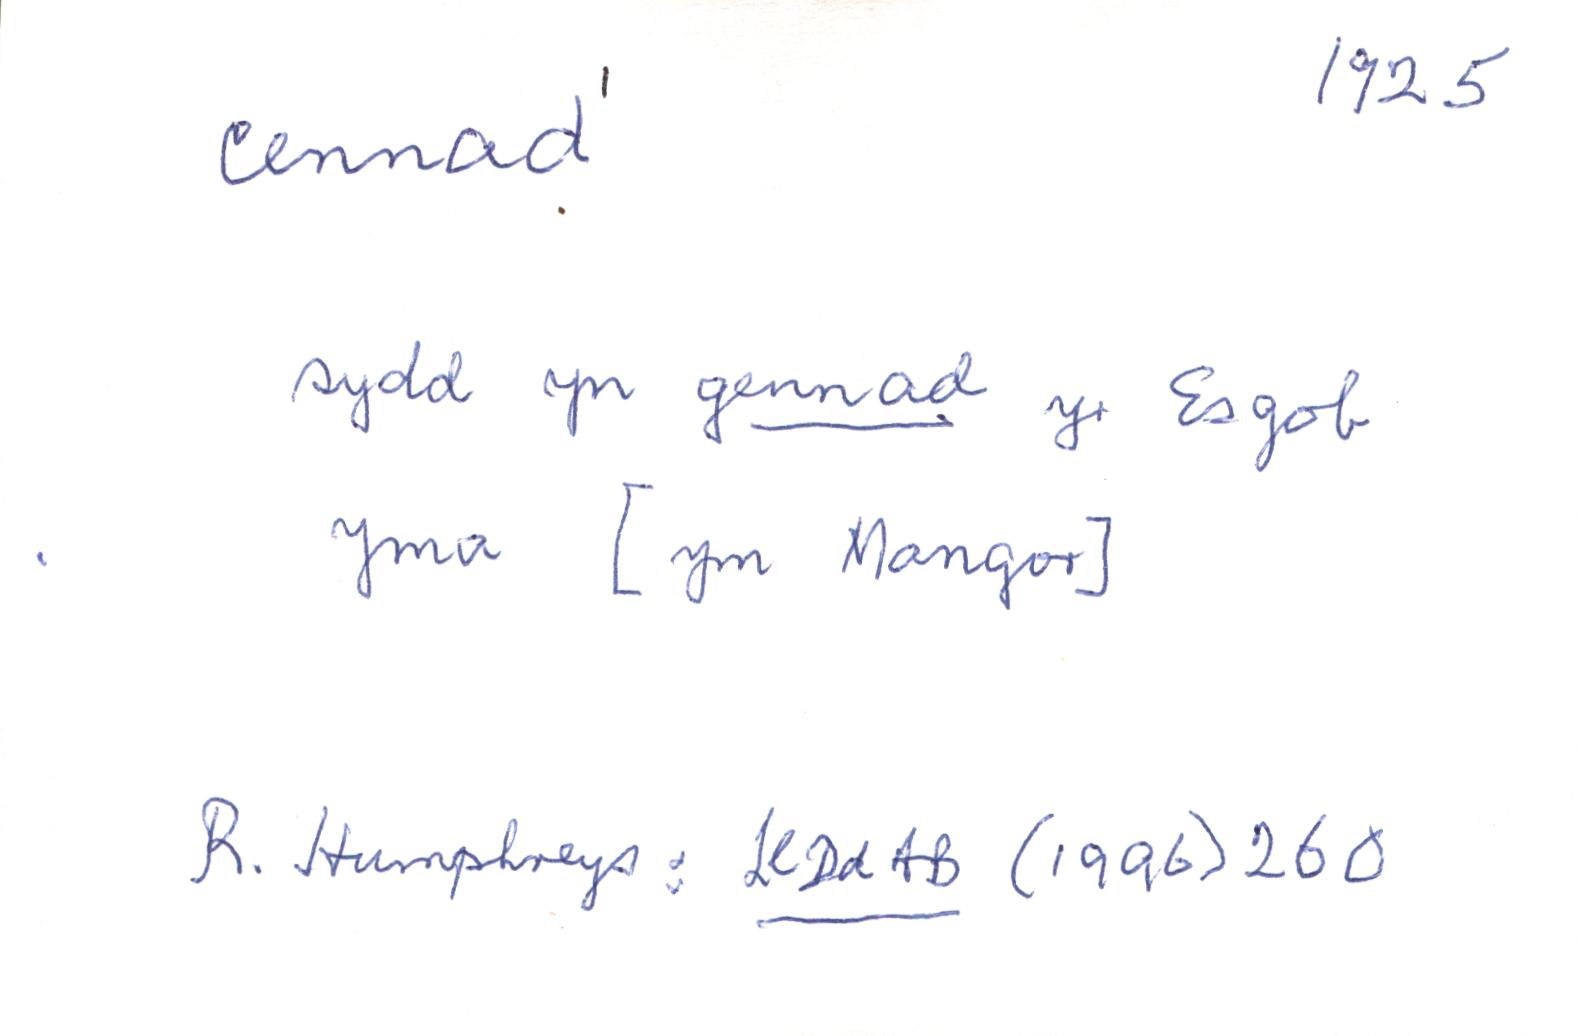 1925
cennad'
sydd yn gennad yr Esgob
yma [ym Mangor]
R. Humphreys: (1996) 260